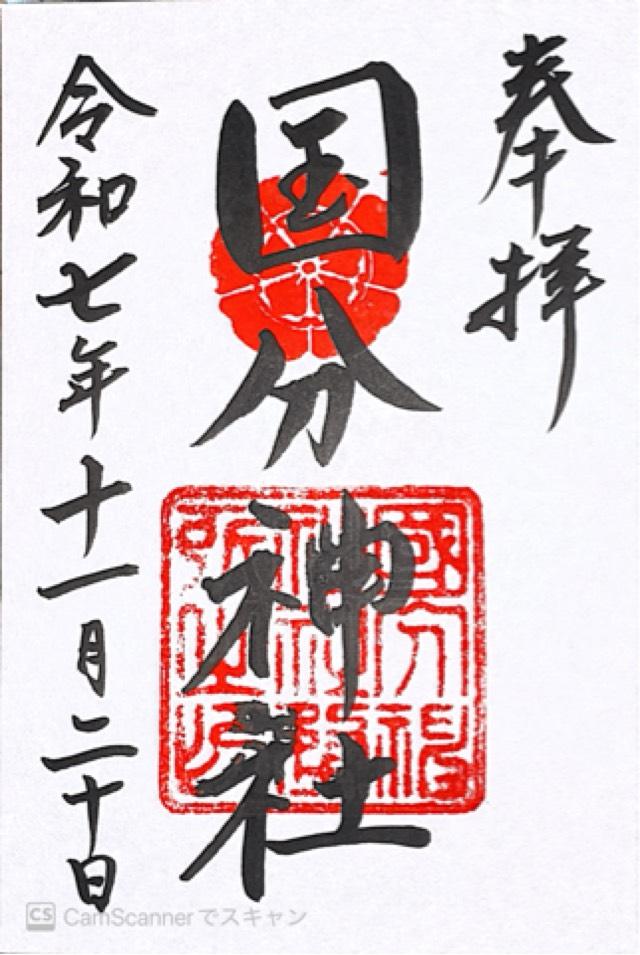 奉拝
国分神社
令和七年十一月二十日
CS CamScannerでスキャン